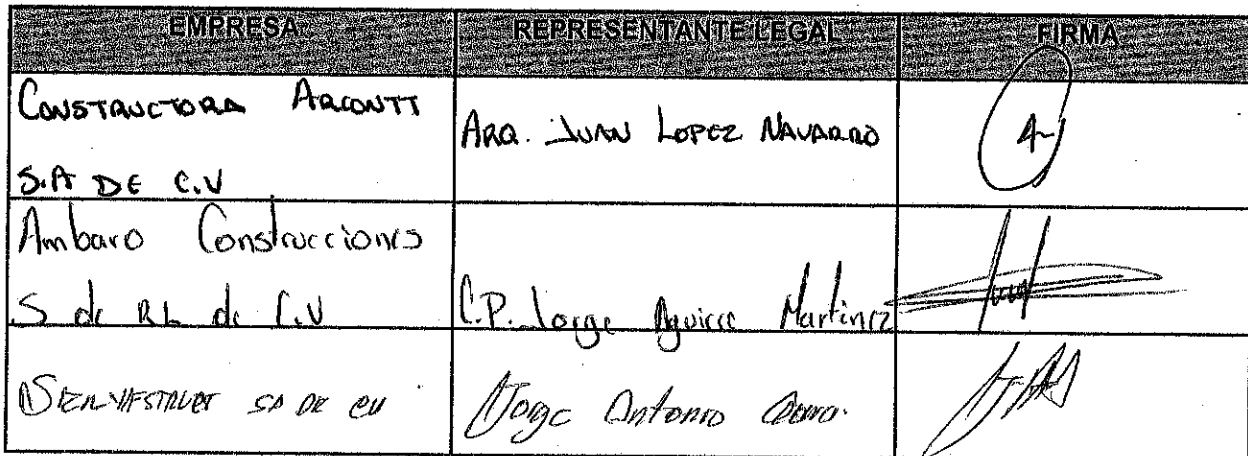 EMPRESA REPRESENTANTE LEGAL FIRMA
CONSTRUCTORA ARCONTT
S.A DE C.V
ARQ. JUAN LOPEZ NAVARRO
Ambaro Construcciones
S de RL de C.V
C.P. Jorge Aguirre Martinez
SA DE CV
Jorge Antonio